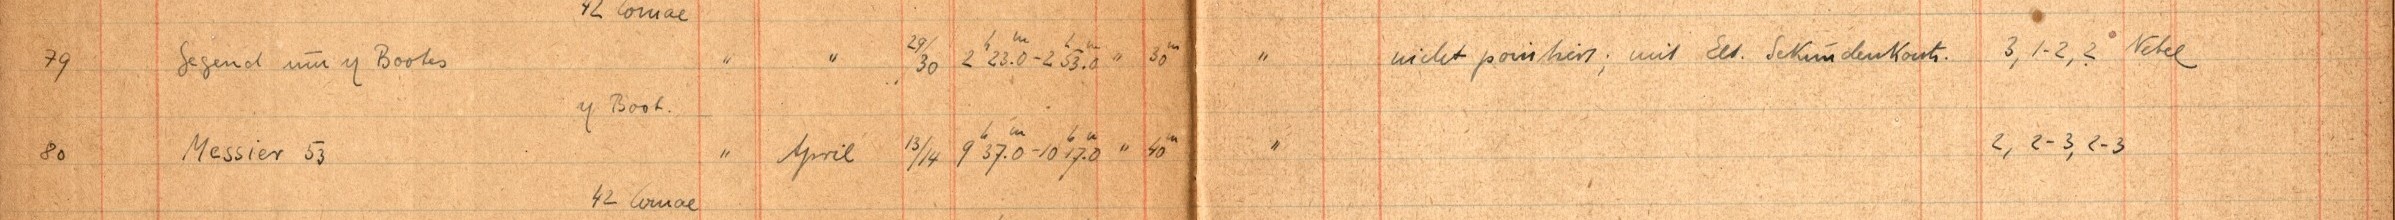 42 Comae
79 Gegend um η Bootes " " 29/30 2h 23.m0 - 2h 53.m0 " 30m " nicht pointiert; mit Elt. Sekundenkontr. 3, 1-2, 2 Nebel
η Boot.
80 Messier 53 " April 13/14 9h 37.m0 - 10h 17.m0 " 40m " 2, 2-3, 2-3
42 Comae